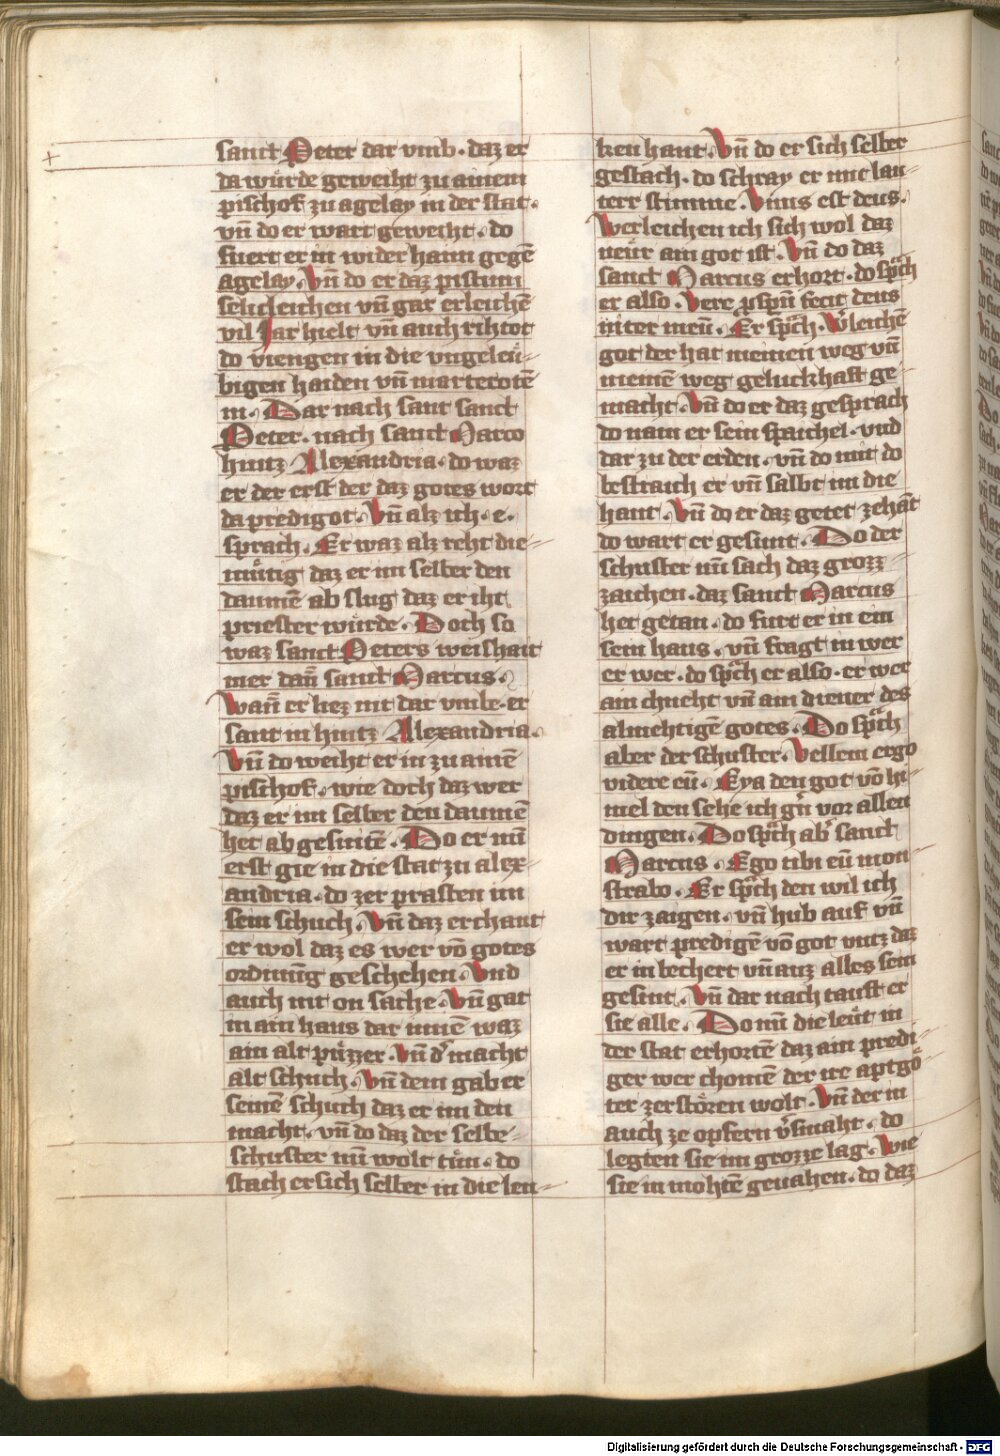 sanct Peter dar vmb · daz er
da würde geweiht zu ainem
pischof zu agelay in der stat ·
vn̄ do er wart geweiht · do
fuert er in wider haim gegē
agelay · Vn̄ do er daz pistum
selicleichen vn̄ gar erleichē
vil Jar hielt vn̄ auch rihtot
do viengen in die vngeleü-
bigen haiden vn̄ marterotē
in · Dar nach sant sanct
Peter · nach sanct Marco
hintz Alexandria · do waz
er der erst der daz gotes wort
da predigot · Vn̄ alz ich · e ·
sprach · Er waz alz reht die-
mütig daz er im selber den
daumē ab slug daz er iht
priester würde · Doch so
waz sanct Peters weishait
mer dan̄ sanct Marcus ·
Wan̄ er liez nit dar vmbe · er
sant in hintz Alexandria ·
Vn̄ do weiht er in zu ainē
pischof · wie doch daz wer
daz er im selber den daumē
het ab gesnitē · Do er nu
erst gie in die stat zu alex-
andria · do zer prasten im
sein schuch · Vn̄ daz erchant
er wol daz es wer vō gotes
ordnūg geschehen · Vnd
auch nit on sache · Vn̄ gat
in ain haus dar innē waz
ain alt püzzer · Vn̄ d' macht
alt schuch · Vn̄ dem gab er
seinē schuch daz er im den
macht · vn̄ do daz der selbe-
schuster nu wolt tün · do
stach er sich selber in die len-
ken hant · Vn̄ do er sich selber
gestach · do schray er mit lau-
terr stimme · Vnus est deus ·
Werleichen ich sich wol daz
neür ain got ist · Vn̄ do daz
sanct Marcus erhort · do sp̄ch
er also · Vere p̄spm̄ fecit deus
initer meū · Er sp̄ch · W'leichē
got der hat meinen weg vn̄
meinē weg geluckhaft ge-
macht · Vn̄ do er daz gesprach
do nam er sein spaichel · vnd
dar zu der erden · vn̄ do mit do
bestraich er vn̄ salbt im die
hant · Vn̄ do er daz getet zehāt
do wart er gesunt · Do der
schuster nu sach daz grozz
zaichen · daz sanct Marcus
het getan · do furt er in ein
sein haus · vn̄ fragt in wer
er wer · do sp̄ch er also · er wer
ain chneht vn̄ ain diener des
almehtigē gotes · Do sp̄ch
aber der schuster · Vellem ergo
videre eū · Eya den got vō hi-
mel den sehe ich gn̄ vor allen
dingen · Do sp̄ch ab' sanct
Marcus · Ego tibi eū mon-
strabo · Er sp̄ch den wil ich
dir zaigen · vn̄ hub auf vn̄
wart predigē vō got vntz daz
er in bechert vn̄ auz alles sein
gesint · Vn̄ dar nach tauft er
sie alle · Do nu die leüt in
der stat erhortē daz ain predi-
ger wer chomē der ire aptgö-
ter zerstören wolt · Vn̄ der in
auch ze opfern v'smaht · do
legten sie im grozze lag · Wie
sie in mohtē genahen · do daz
Digitalisierung gefördert durch die Deutsche Forschungsgemeinschaft - DFG